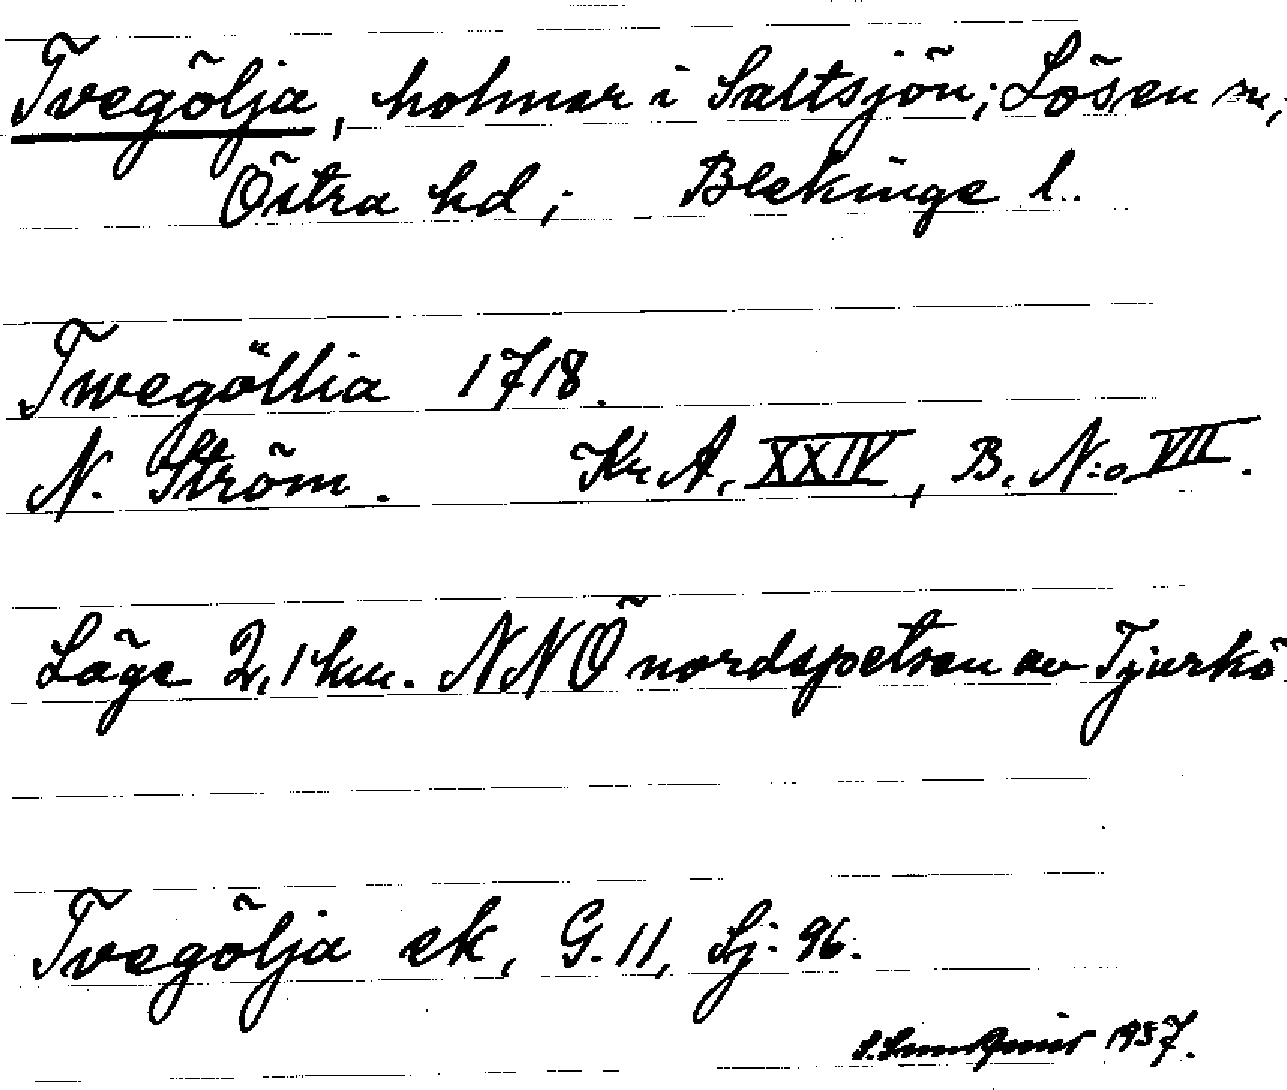 Tvegölja, holmar i Saltsjön; Lösen sn,
Östra hd; Blekinge l.
Twegöllia 1718.
N. Ström. Kr A, XXIV, B. N:o VII.
Läge 2,1 km. NNÖ nordspetsen av Tjurkö
Tvegölja ek, G. 11, Sj: 96.
1957.